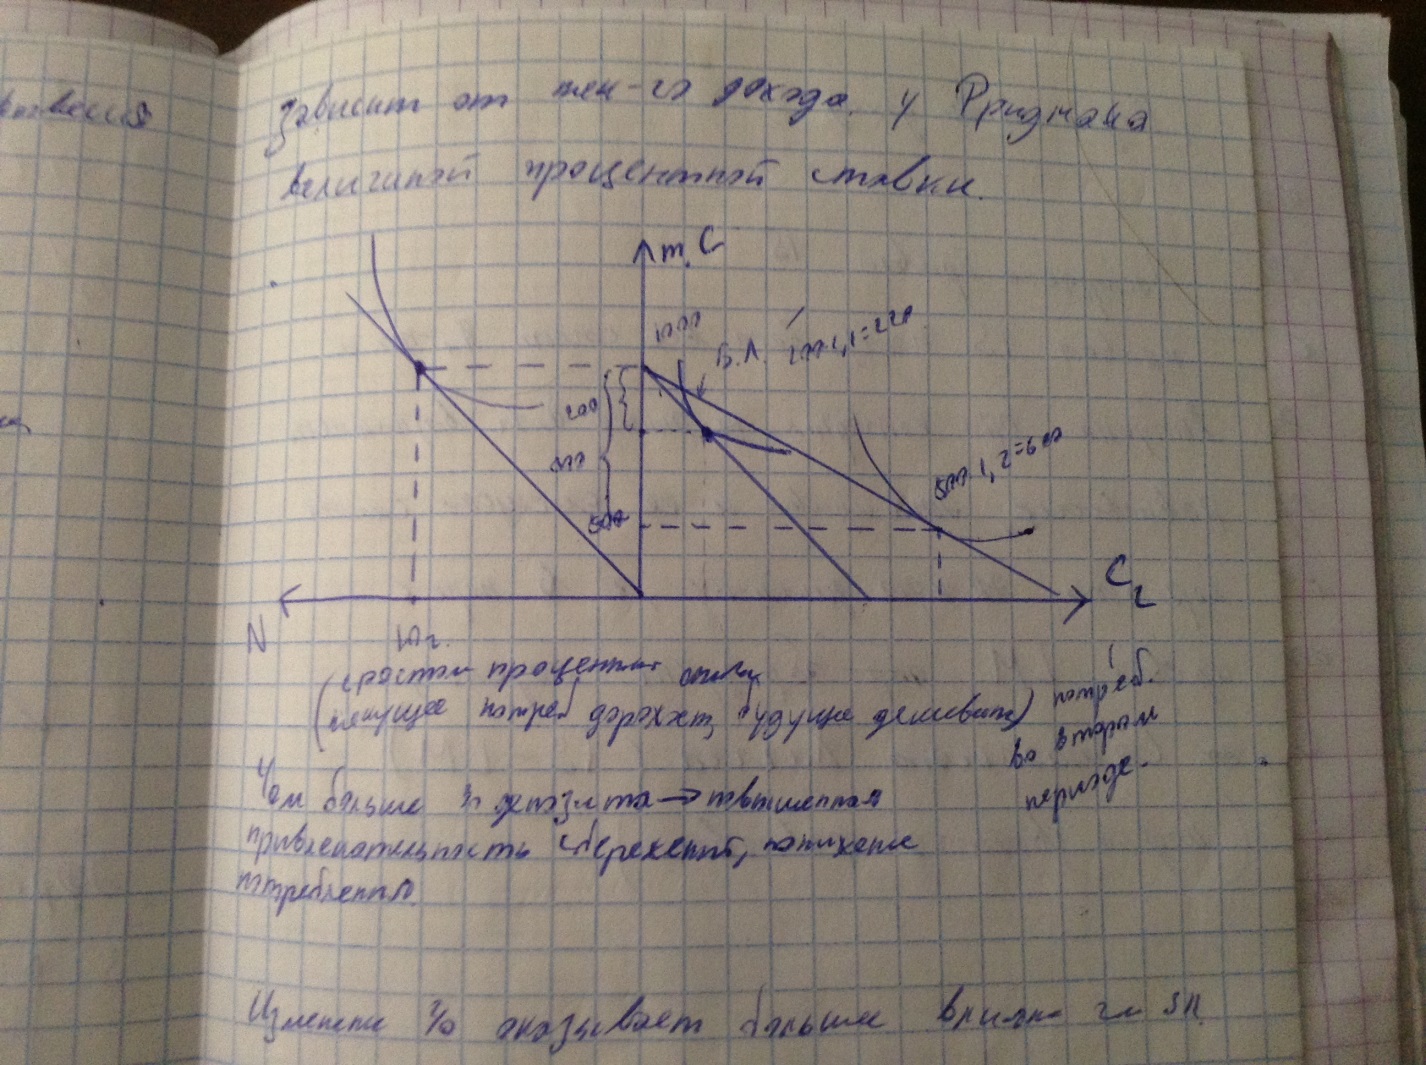 Зависит от тек-го дохода у Фридмана
величиной процентной ставки.
т.С
1000
Б.Л. 200·1,1=220
200
500
500·1,2=600
С₂
N
10 г.
(с ростом процентн ставки
текущее потреб дорожает, будуще дешевеет) потреб.
во втором
периоде.
Чем больше % депозита → повышенная
привлекательность сбережений, понижение
потребления
Изменение % оказывает больше влияние